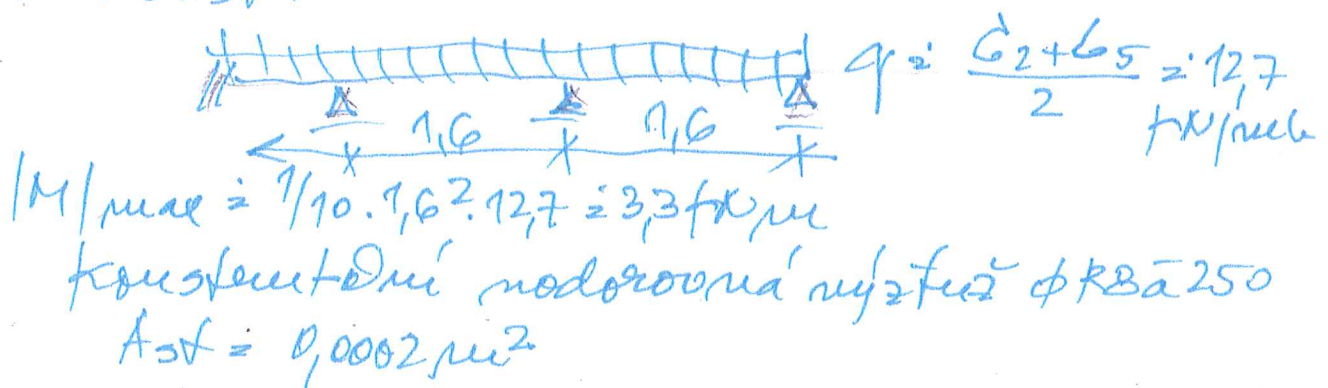 q = (σ2+σ5)/2 = 12,7
kN/mb
1,6 1,6
|M| max = 1/10 . 1,6² . 12,7 = 3,3 kNm
konstrukční vodorovná výztuž ϕR8 ā 250
Ast = 0,0002 m²